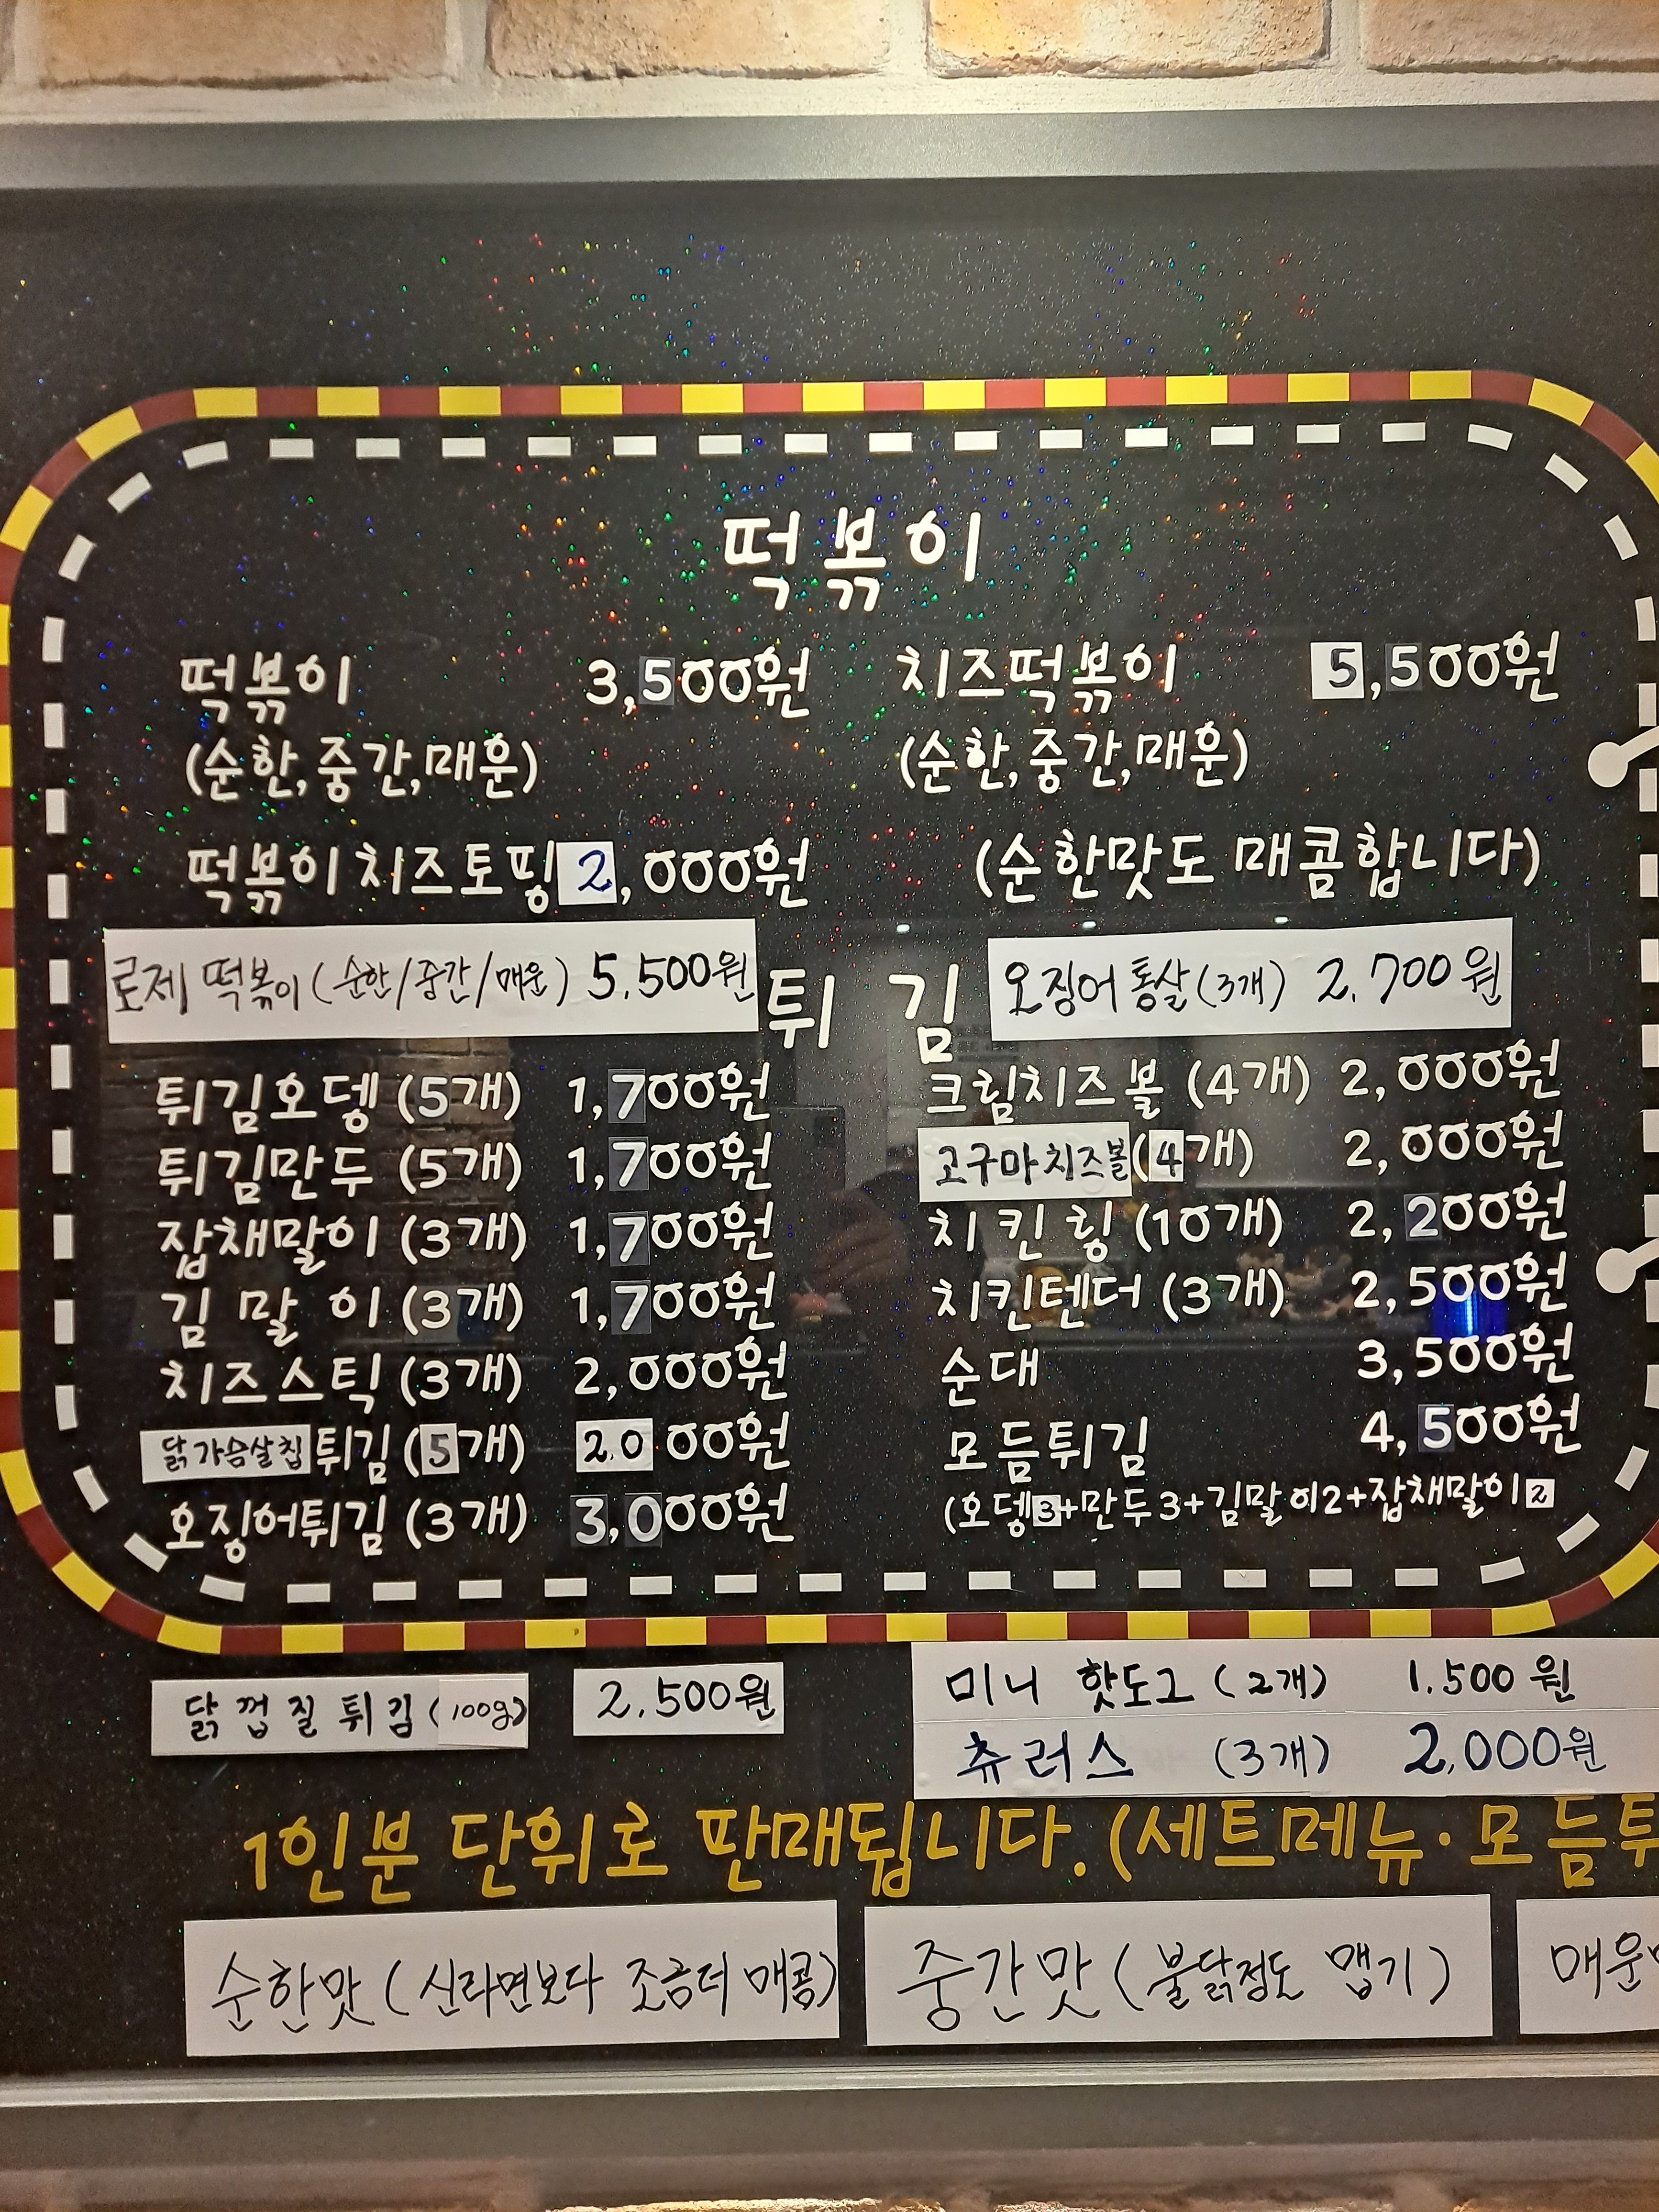 떡볶이
떡볶이 3,500원 치즈떡볶이 5,500원
(순한,중간,매운) (순한,중간,매운)
떡볶이치즈토핑 2,000원 (순한맛도 매콤합니다)
로제 떡볶이(순한/중간/매운) 5.500원 튀 김 오징어통살(3개) 2.700원
튀김오뎅(5개) 1,700원 크림치즈볼(4개) 2,000원
튀김만두(5개) 1,700원 고구마치즈볼(4개) 2,000원
잡채말이(3개) 1,700원 치킨링(10개) 2,200원
김말이(3개) 1,700원 치킨텐더(3개) 2,500원
치즈스틱(3개) 2,000원 순대 3,500원
닭가슴살칩튀김(5개) 2.000원 모듬튀김 4,500원
오징어튀김(3개) 3,000원 (오뎅3+만두3+김말이2+잡채말이2
닭껍질튀김(100g) 2.500원 미니 핫도그(2개) 1.500원
츄러스 (3개) 2,000원
1인분 단위로 판매됩니다.(세트메뉴·모듬튀
순한맛(신라면보다 조금더 매콤) 중간맛(불닭정도 맵기) 매운